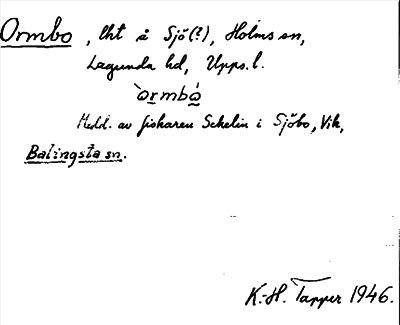 Ormbo, lht å Sjö(?), Holms sn,
Lagunda hd, Upps. l.
`ormbó
Medd. av fiskaren Schelin i Sjöbo, Vik,
Balingsta sn.
K.-H. Tapper 1946.